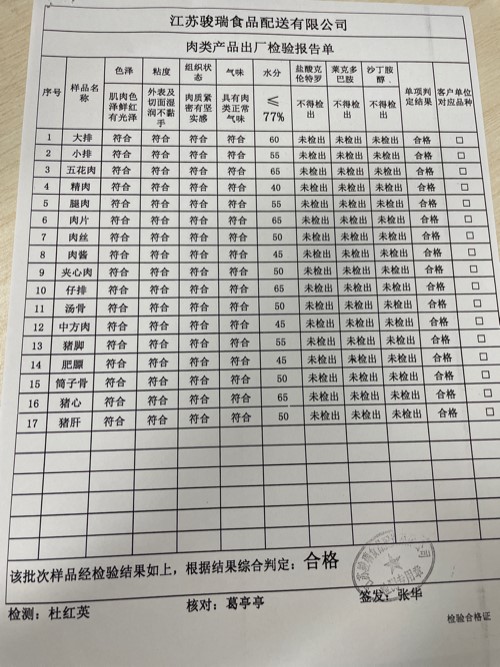 江苏骏瑞食品配送有限公司
肉类产品出厂检验报告单
序号 样品名称 色泽 粘度 组织状态 气味 水分 盐酸克伦特罗 莱克多巴胺 沙丁胺醇. 单项判定结果 客户单位对应品种
肌肉色泽鲜红有光泽 外表及切面湿润不黏手 肉质紧密有坚实感 具有肉类正常气味 ≤77% 不得检出 不得检出 不得检出
1 大排 符合 符合 符合 符合 60 未检出 未检出 未检出 合格 □
2 小排 符合 符合 符合 符合 55 未检出 未检出 未检出 合格 □
3 五花肉 符合 符合 符合 符合 65 未检出 未检出 未检出 合格 □
4 精肉 符合 符合 符合 符合 40 未检出 未检出 未检出 合格 □
5 腿肉 符合 符合 符合 符合 55 未检出 未检出 未检出 合格 □
6 肉片 符合 符合 符合 符合 65 未检出 未检出 未检出 合格 □
7 肉丝 符合 符合 符合 符合 50 未检出 未检出 未检出 合格 □
8 肉酱 符合 符合 符合 符合 45 未检出 未检出 未检出 合格 □
9 夹心肉 符合 符合 符合 符合 50 未检出 未检出 未检出 合格 □
10 仔排 符合 符合 符合 符合 65 未检出 未检出 未检出 合格 □
11 汤骨 符合 符合 符合 符合 50 未检出 未检出 未检出 合格 □
12 中方肉 符合 符合 符合 符合 45 未检出 未检出 未检出 合格 □
13 猪脚 符合 符合 符合 符合 55 未检出 未检出 未检出 合格 □
14 肥膘 符合 符合 符合 符合 45 未检出 未检出 未检出 合格 □
15 筒子骨 符合 符合 符合 符合 50 未检出 未检出 未检出 合格 □
16 猪心 符合 符合 符合 符合 65 未检出 未检出 未检出 合格 □
17 猪肝 符合 符合 符合 符合 50 未检出 未检出 未检出 合格 □
该批次样品经检验结果如上，根据结果综合判定：合格
检测：杜红英 核对：葛亭亭 签发：张华
检验合格证